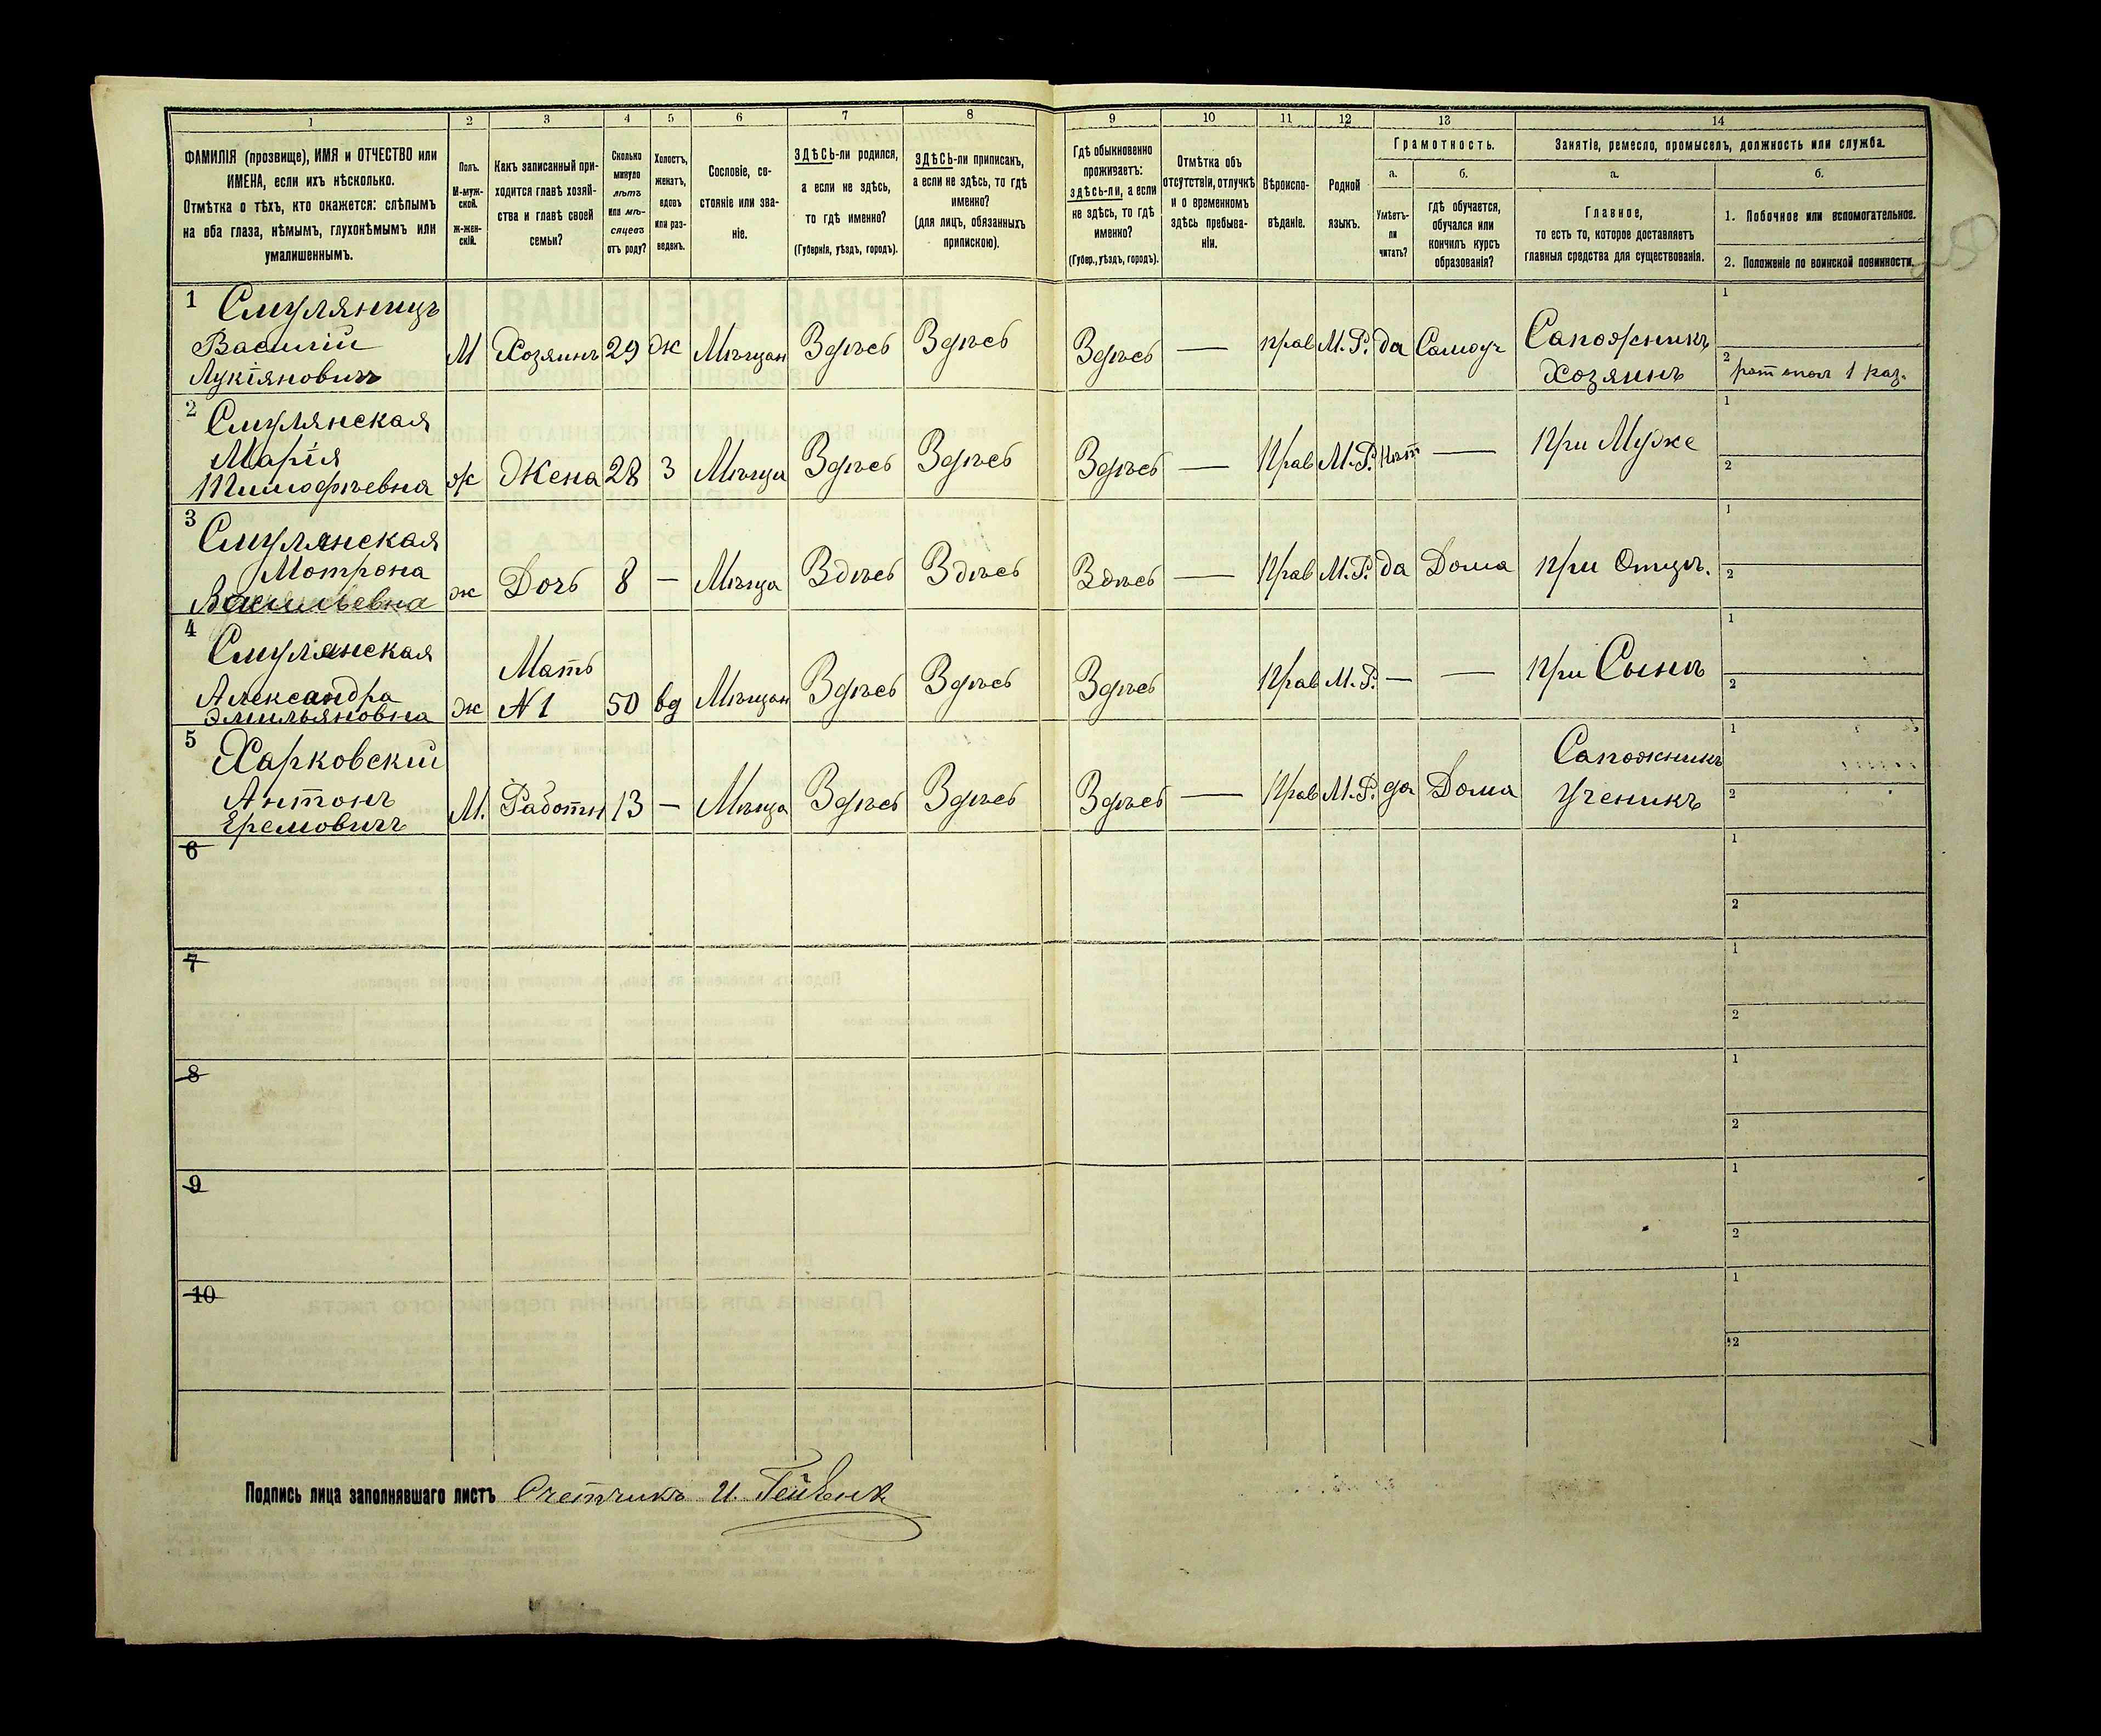 1 2 3 4 5 6 7 8 9 10 11 12 13 14
ФАМИЛІЯ (прозвище), ИМЯ и ОТЧЕСТВО или
ИМЕНА, если ихъ нѣсколько.
Отмѣтка о тѣхъ, кто окажется: слѣпымъ
на оба глаза, нѣмымъ, глухонѣмымъ или
умалишеннымъ.
Полъ.
М-муж-
ской.
Ж-жен-
скій.
Какъ записанный при-
ходится главѣ хозяй-
ства и главѣ своей
семьи?
Сколько
минуло
лѣтъ
или мѣ-
сяцевъ
отъ роду?
Холостъ,
женатъ,
вдовъ
или раз-
веденъ.
Сословіе, со-
стояніе или зва-
ніе.
ЗДѢСЬ-ли родился,
а если не здѣсь,
то гдѣ именно?
(Губернія, уѣздъ, городъ).
ЗДѢСЬ-ли приписанъ,
а если не здѣсь, то гдѣ
именно?
(для лицъ, обязанныхъ
припискою).
Гдѣ обыкновенно
проживаетъ:
здѣсь-ли, а если
не здѣсь, то гдѣ
именно?
(Губер., уѣздъ, городъ).
Отмѣтка объ
отсутствіи, отлучкѣ
и о временномъ
здѣсь пребыва-
ніи.
Вѣроиспо-
вѣданіе.
Родной
языкъ.
Грамотность.
а. б.
Умѣетъ-
ли
читать?
гдѣ обучается,
обучался или
кончилъ курсъ
образованія?
Занятіе, ремесло, промыселъ, должность или служба.
а. б.
Главное,
то есть то, которое доставляетъ
главныя средства для существованія.
1. Побочное или вспомогательное.
2. Положеніе по воинской повинности.
1
Василій
Лукіяновичъ
М Хозяинъ 29 ж Мѣщан Здѣсь Здѣсь Здѣсь — прав М.Р. да Самоуч
Сапожникъ
Хозяинъ
1
2 рат опол 1 раз.
2 Смулянская
Марія
Тимофѣевна
ж Жена 28 З Мѣща Здѣсь Здѣсь Здѣсь — Прав М.Р. Нѣт — При Муже
1
2
3 Смулянская
Мотрона
Васильевна
ж Дочь 8 — Мѣща Здѣсь Здѣсь Здѣсь — Прав М.Р. да Дома при Отцѣ.
1
2
4 Смулянская
Александра
Эмильяновна
ж Мать
№1 50 вд Мѣщан Здѣсь Здѣсь Здѣсь Прав М.Р. — — при Сынѣ
1
2
5 Харковский
Антонъ
Еремовичъ
М. Работн 13 — Мѣща Здѣсь Здѣсь Здѣсь — Прав М.Р. да Дома
Сапожникъ
Ученикъ
1
2
6
1
2
7
1
2
8
1
2
9
1
2
10
1
2
Подпись лица заполнявшаго листъ Счетчикъ И.